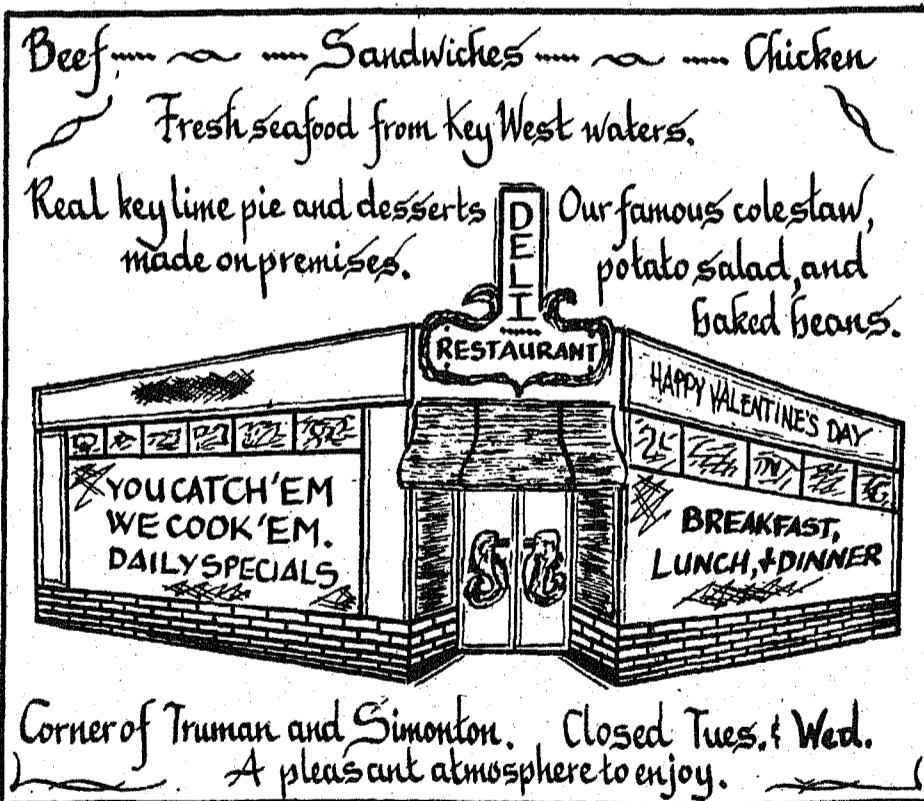 Beef Sandwiches Chicken
Fresh seafood from Key West waters.
Real key lime pie and desserts
made on premises.
Our famous coleslaw,
potato salad, and
baked beans.
DELI
RESTAURANT
HAPPY VALENTINE'S DAY
YOU CATCH 'EM
WE COOK 'EM.
DAILY SPECIALS
BREAKFAST,
LUNCH, & DINNER
Corner of Truman and Simonton. Closed Tues. & Wed.
A pleasant atmosphere to enjoy.